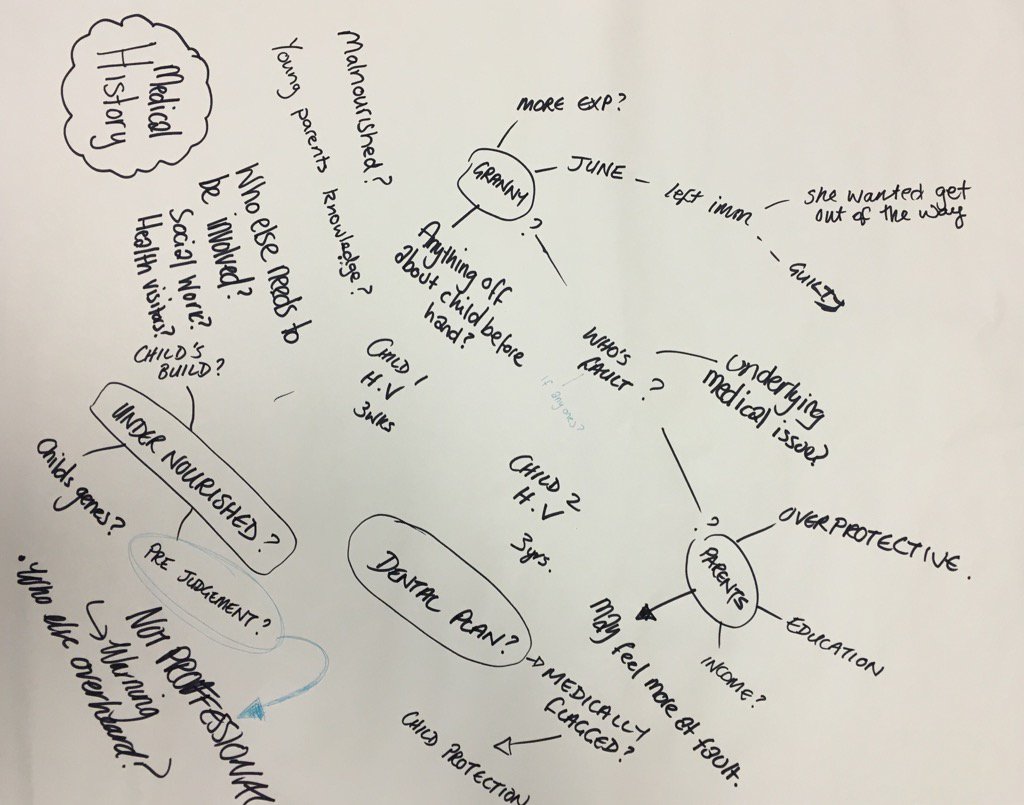 Medical
History
Malnourished?
Young parents knowledge?
Who else needs to
be involved?
Social Work?
Health visitors?
MORE EXP?
GRANNY
?
JUNE
left imm
she wanted get
out of the way
GUILTY
Anything off
about child before
hand?
WHO'S
FAULT?
If
anyones?
underlying
medical issue?
CHILD 1
H.V
3wks
CHILD 2
H.V
3yrs.
CHILD'S
BUILD?
UNDER NOURISHED?
Childs genes?
PRE JUDGEMENT?
NOT PROFFESSIONAL
Warning
• Who else overheard?
DENTAL PLAN?
MEDICALLY
FLAGGED?
CHILD PROTECTION
?
PARENTS
OVERPROTECTIVE.
EDUCATION
INCOME?
May feel more at fault.